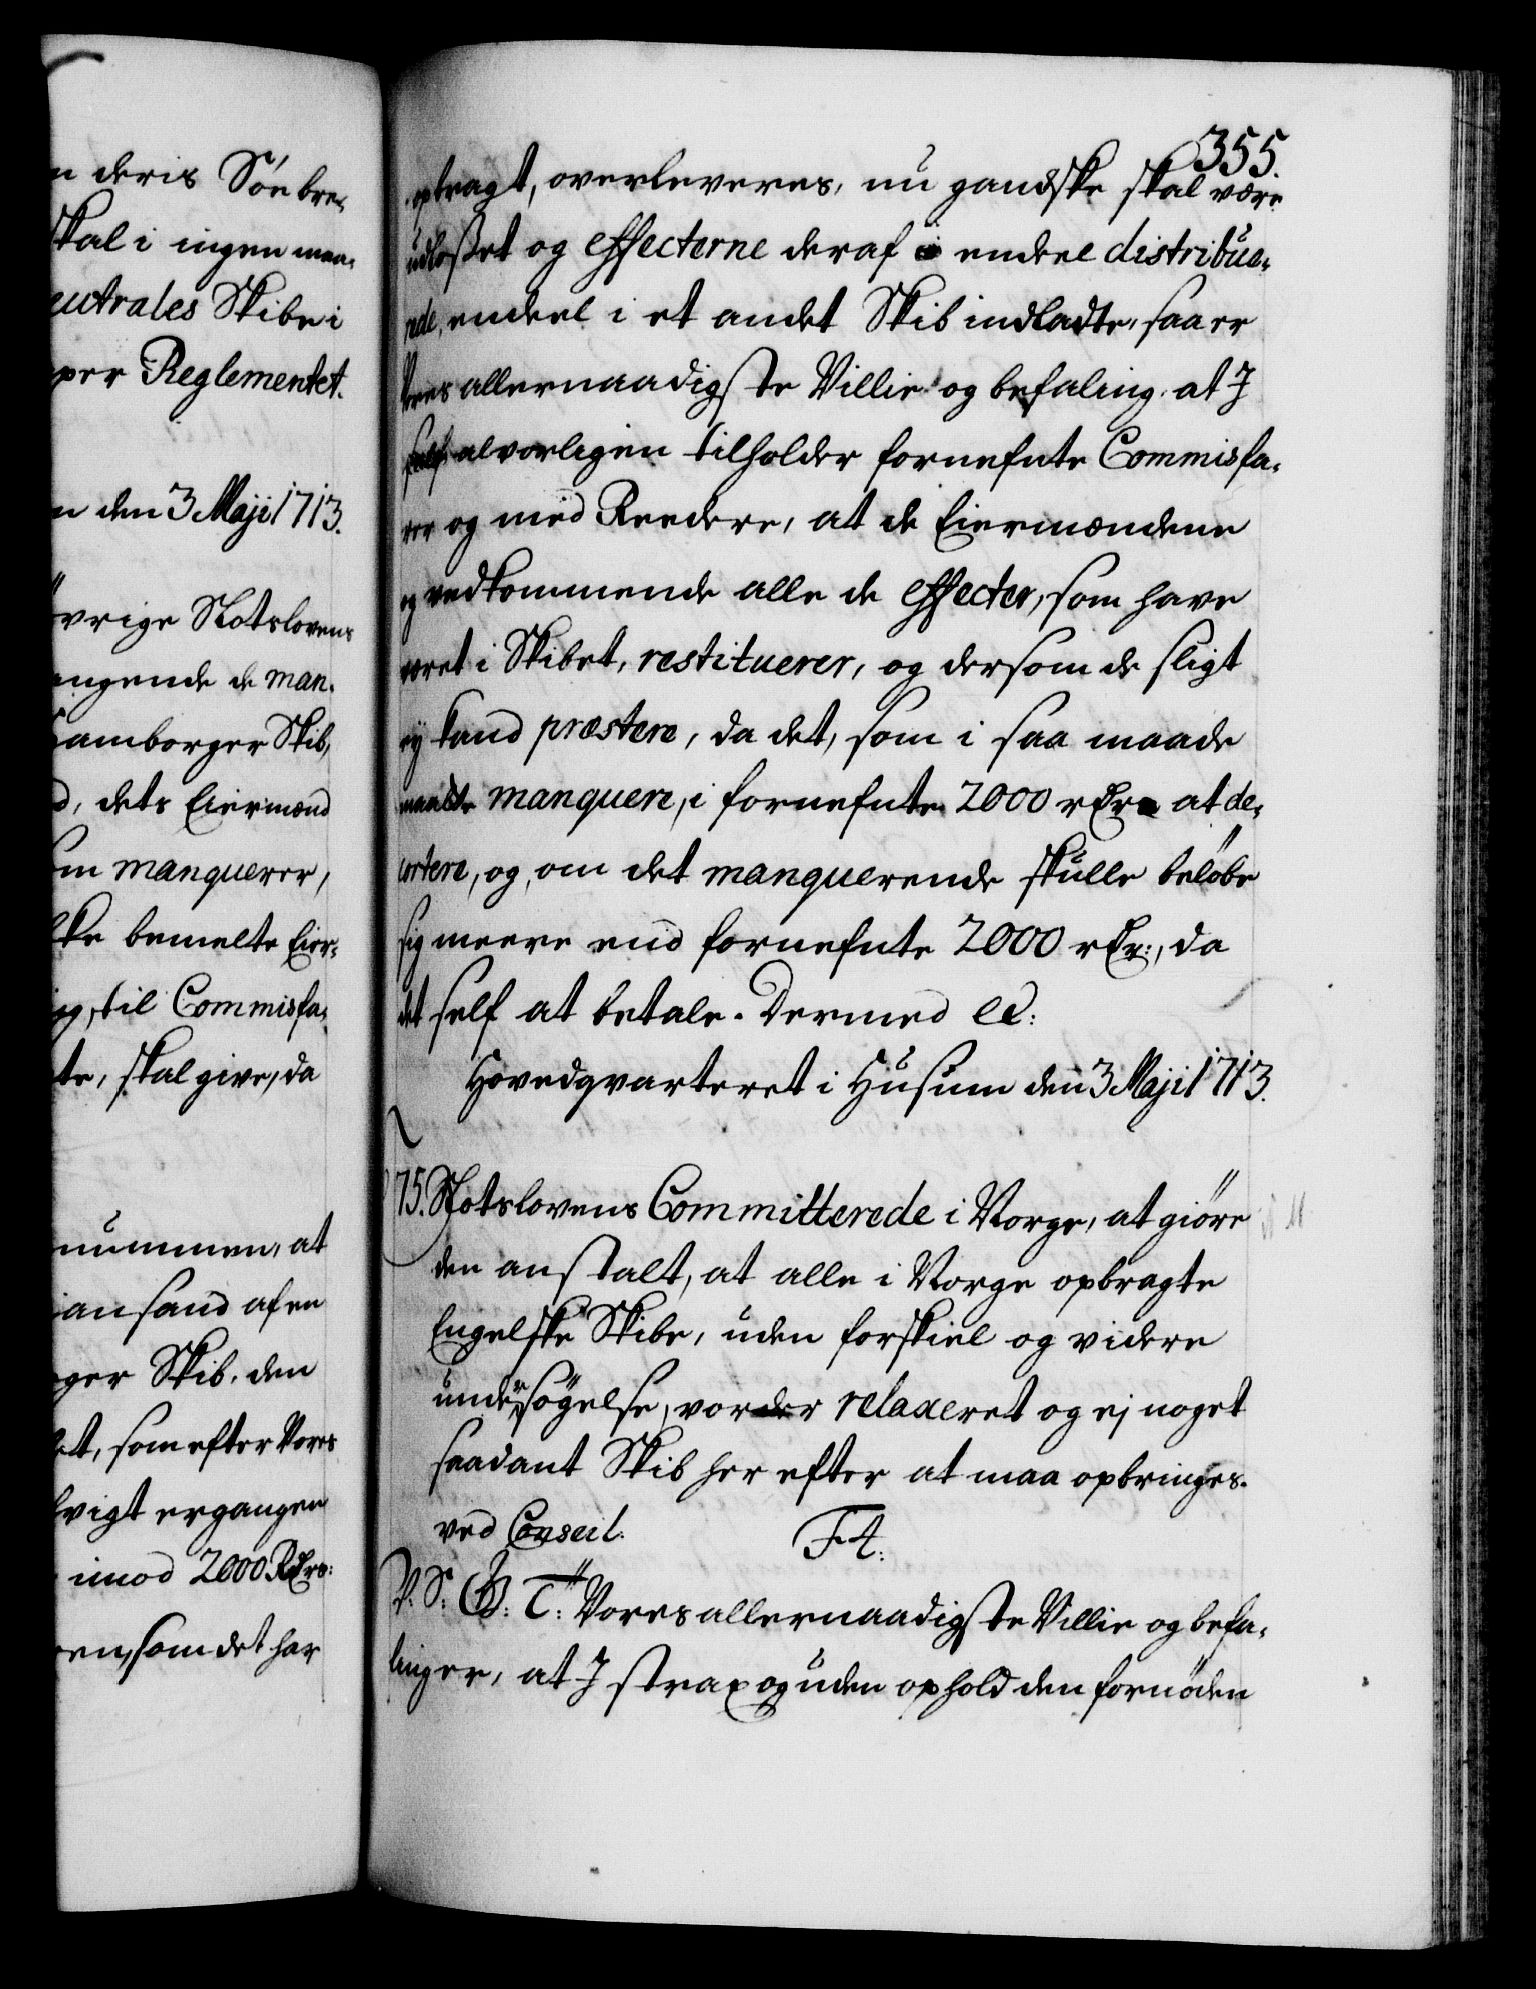 n deris Söe bre-
skal i ingen maa-
eutrales Skibe i
per Reglementet.
n den 3 Maji 1713.
övrige Slotslovens
angende de man-
Hamborger Skib,
d, dets Eiermænd
om manquerer,
ske bemelte Eier-
og, til Commissa-
te, skal give, da
nummen, at
iansand af en
ger Skib, den
et, som efter Vores
lvigt ergangen
imod 2000 Rdr:
en, som det har
355.
opbragt, overleveres, nu gandske skal være
udlosset og effecterne deraf endeel distribue-
rede, endeel i et andet Skib indladte, saa er
Vores allernaadigste Villie og befaling, at I
self alvorligen tilholder fornefnte Commissa-
rer og med Reedere, at de Eiermændene
og vedkommende alle de effecter, som have
været i Skibet, restituerer, og dersom de sligt
ej kand præstere, da det, som i saa maade
maatte manquere, i fornefnte 2000 rdr at de-
cortere, og, om det manquerende skulle belöbe
sig meere end fornefnte 2000 rdr:, da
det self at betale. Dermed etc:
Hovedqvarteret i Husum den 3 Maji 1713.
75. Slotslovens Committerede i Norge, at giöre
den anstalt, at alle i Norge opbragte
Engelske Skibe, uden forskiel og videre
undersögelse, vorder relaxeret og ej noget
saadant Skib her efter at maa opbringes.
ved Conseil. F4.
V. S: G: T: Vores allernaadigste Villie og befa-
linger, at I strax og uden ophold den fornöden